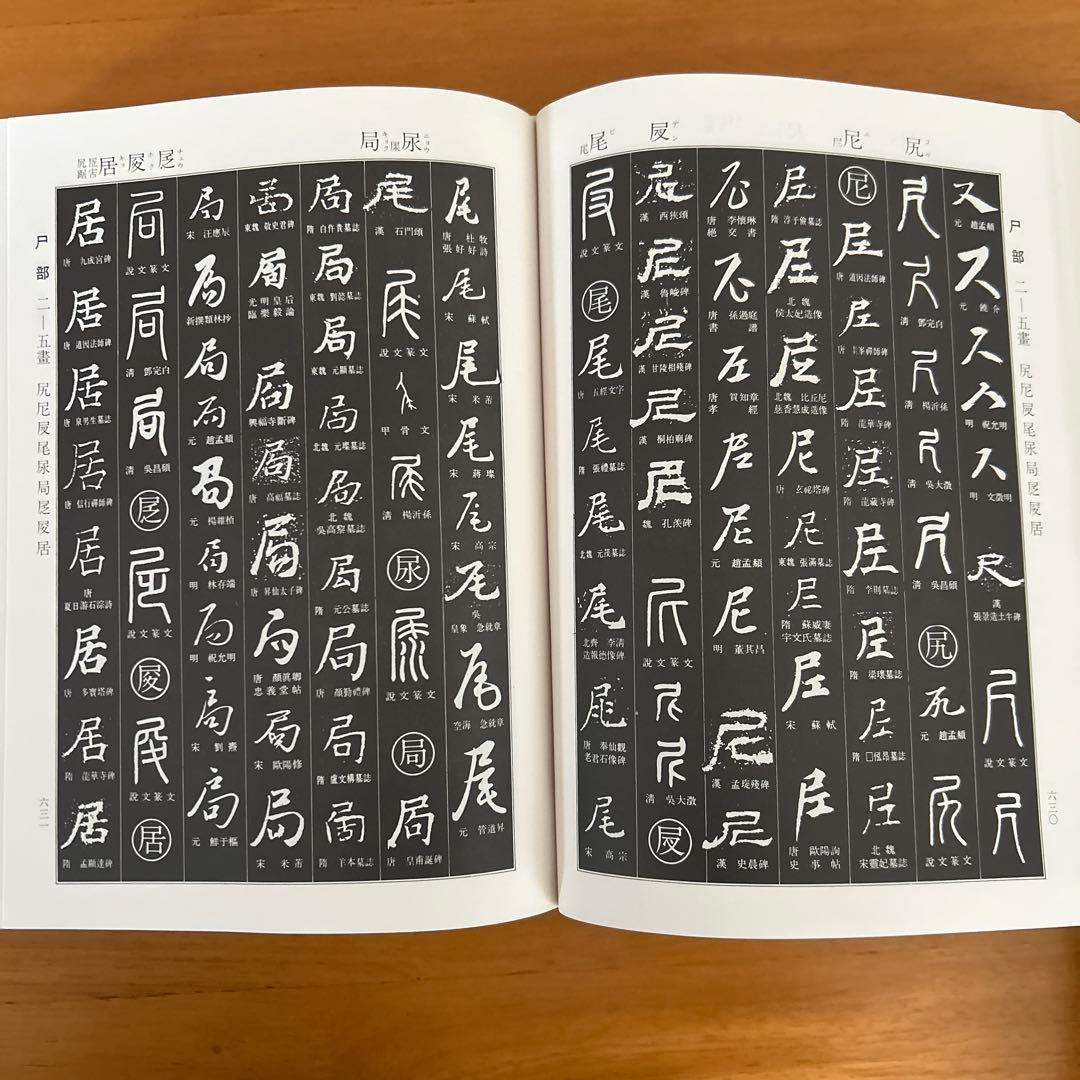 尻 コウ
尼 ニ
𡰱 テン
尾 ビ
尾
尸部
二—五畫
尻尼𡰱尾尿局
居
六三〇
又
元 趙孟頫
元 饒介
明 祝允明
明 文徵明
漢
張景造土牛碑
清 鄧完白
清 楊沂孫
清 吳大澂
清 吳昌碩
尻
元 趙孟頫
說文篆文
尼
唐 道因法師碑
唐 圭峯禪師碑
隋 龍華寺碑
隋 龍藏寺碑
隋 李則墓誌
隋 梁瓌墓誌
隋 □泓昂墓誌
北魏
宋靈妃墓誌
隋 淳于儉墓誌
北魏
侯太妃造像
北魏 比丘尼
慈香慧成造像
唐 玄祕塔碑
東魏 張滿墓誌
隋 蘇威妻
宇文氏墓誌
宋 蘇軾
唐 歐陽詢
史事帖
唐 李懷琳
絕交書
唐 孫過庭
書譜
唐 賀知章
孝經
元 趙孟頫
明 董其昌
漢 孟琁殘碑
漢 史晨碑
漢 西狹頌
漢 魯峻碑
漢 甘陵相殘碑
漢 桐柏廟碑
魏 孔羨碑
說文篆文
清 吳大澂
說文篆文
尾
唐 五經文字
隋 張禮墓誌
北魏 元茂墓誌
北齊 李清
造報德像碑
唐 奉仙觀
老君石像碑
宋 高宗
尿 ニョウ
局 キョク
居 キョ
唐 杜牧
張好好詩
宋 蘇軾
宋 米芾
宋 蔣璨
宋 高宗
吳
皇象 急就章
空海 急就章
元 管道昇
漢 石門頌
說文篆文
甲骨文
清 楊沂孫
尿
說文篆文
局
唐 皇甫誕碑
隋 白仵貴墓誌
東魏 劉懿墓誌
東魏 元顯墓誌
北魏 元璨墓誌
北魏
吳高黎墓誌
隋 元公墓誌
唐 顏勤禮碑
隋 盧文構墓誌
隋 羊本墓誌
東魏 敬史君碑
光明皇后
臨樂毅論
興福寺斷碑
唐 高福墓誌
唐 昇仙太子碑
唐 顏眞卿
忠義堂帖
宋 歐陽修
宋 米芾
宋 汪應辰
新撰類林抄
元 趙孟頫
元 楊維楨
明 林存端
明 祝允明
宋 劉燾
元 鮮于樞
說文篆文
清 鄧完白
清 吳昌碩
說文篆文
說文篆文
居
唐 九成宮碑
唐 道因法師碑
唐 泉男生墓誌
唐 信行禪師碑
唐
夏日游石淙詩
唐 多寶塔碑
隋 龍華寺碑
隋 孟顯達碑
尸部
二—五畫
尻尼𡰱尾尿局
居
六三一